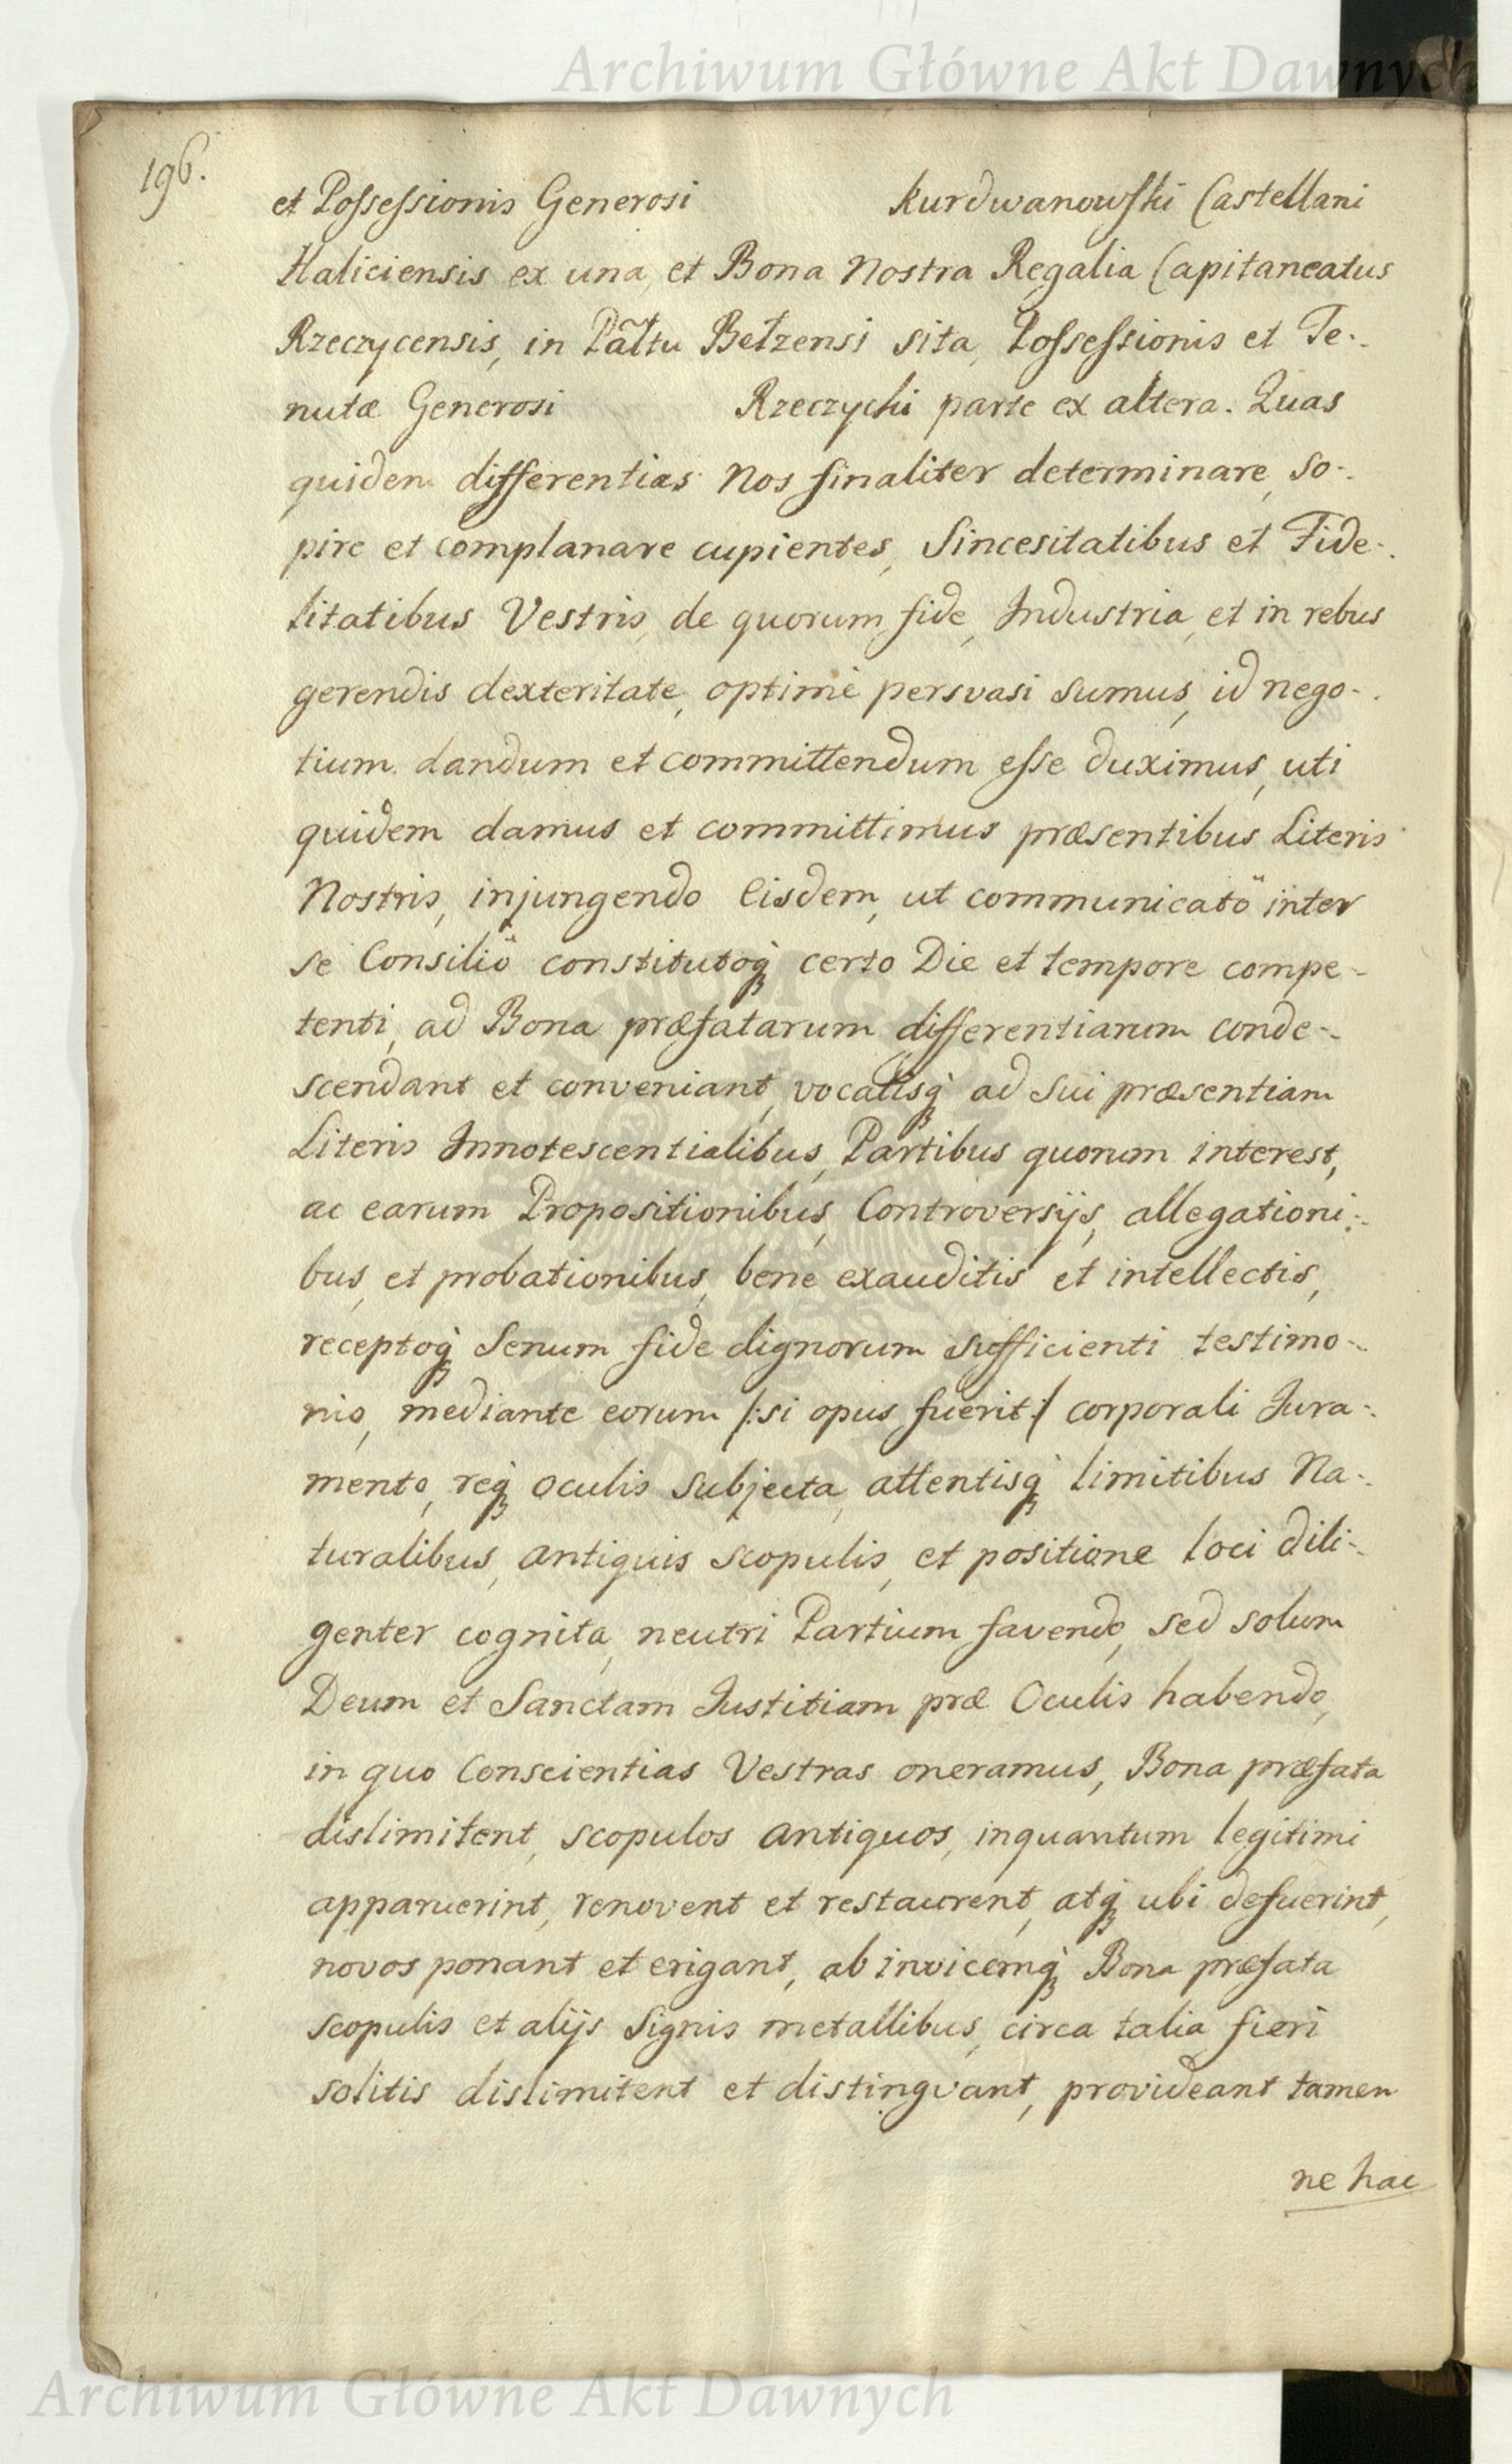 Archiwum Główne Akt Dawnych
196.
et Possessionis Generosi Kurdwanowski Castellani
Haliciensis ex una, et Bona Nostra Regalia Capitaneatus
Rzeczycensis, in Pałtu Bełzensi sita, Possessionis et Te-
nutæ Generosi Rzeczychi parte ex altera. Quas
quidem differentias Nos finaliter determinare, so-
pire et complanare cupientes, Sincesitatibus et Fide-
litatibus Vestris, de quorum fide, Industria, et in rebus
gerendis dexteritate, optimè persvasi sumus, id nego-
tium dandum et committendum esse duximus, uti
quidem damus et committimus præsentibus Literis
Nostris, injungendo Eisdem, ut communicatö inter
se Consiliö constitutoq; certo Die et tempore compe-
tenti, ad Bona præfatarum differentiarum conde-
scendant et conveniant, vocatisq; ad sui præsentiam
Literis Innotescentialibus, Partibus quorum interest,
ac earum Propositionibus, Controversijs, allegationi-
bus, et probationibus, bene exauditis et intellectis,
receptoq; Senum fide dignorum sufficienti testimo-
nio, mediante eorum /:si opus fuerit:/ corporali Jura-
mento, req; oculis subjecta, attentisq; limitibus Na-
turalibus, antiquis scopulis, et positione loci dili-
genter cognita, neutri Partium favendo, sed solum
Deum et Sanctam Justitiam præ Oculis habendo,
in quo Conscientias Vestras oneramus, Bona præfata
dislimitent, scopulos antiquos, inquantum legitimi
apparuerint, renovent et restaurent, atq; ubi defuerint,
novos ponant et erigant, ab invicemq; Bona præfata
scopulis et alijs Signis metallibus, circa talia fieri
solitis dislimitent et distingvant, provideant tamen
ne hac
Archiwum Główne Akt Dawnych